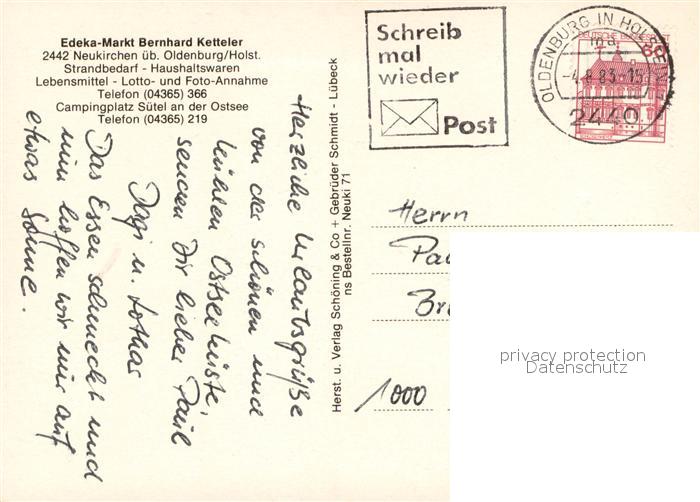 Edeka-Markt Bernhard Ketteler
2442 Neukirchen üb. Oldenburg/Holst.
Strandbedarf - Haushaltswaren
Lebensmittel - Lotto- und Foto-Annahme
Telefon (04365) 366
Campingplatz Sütel an der Ostsee
Telefon (04365) 219
Herzliche Urlaubsgrüße
von der schönen und
kühlen Ostseeküste,
senden Dir lieber Paul
Dagi u. Lothar
Das Essen schmeckt und
nun hoffen wir nur auf
etwas Sonne.
Herst. u. Verlag Schöning & Co + Gebrüder Schmidt - Lübeck
ns Bestellnr. Neuki 71
Schreib
mal
wieder
Post
OLDENBURG IN HOLST
ma
-4.8.83-15
2440
60
DEUTSCHE BUNDESPOST
Herrn
1000
privacy protection
Datenschutz